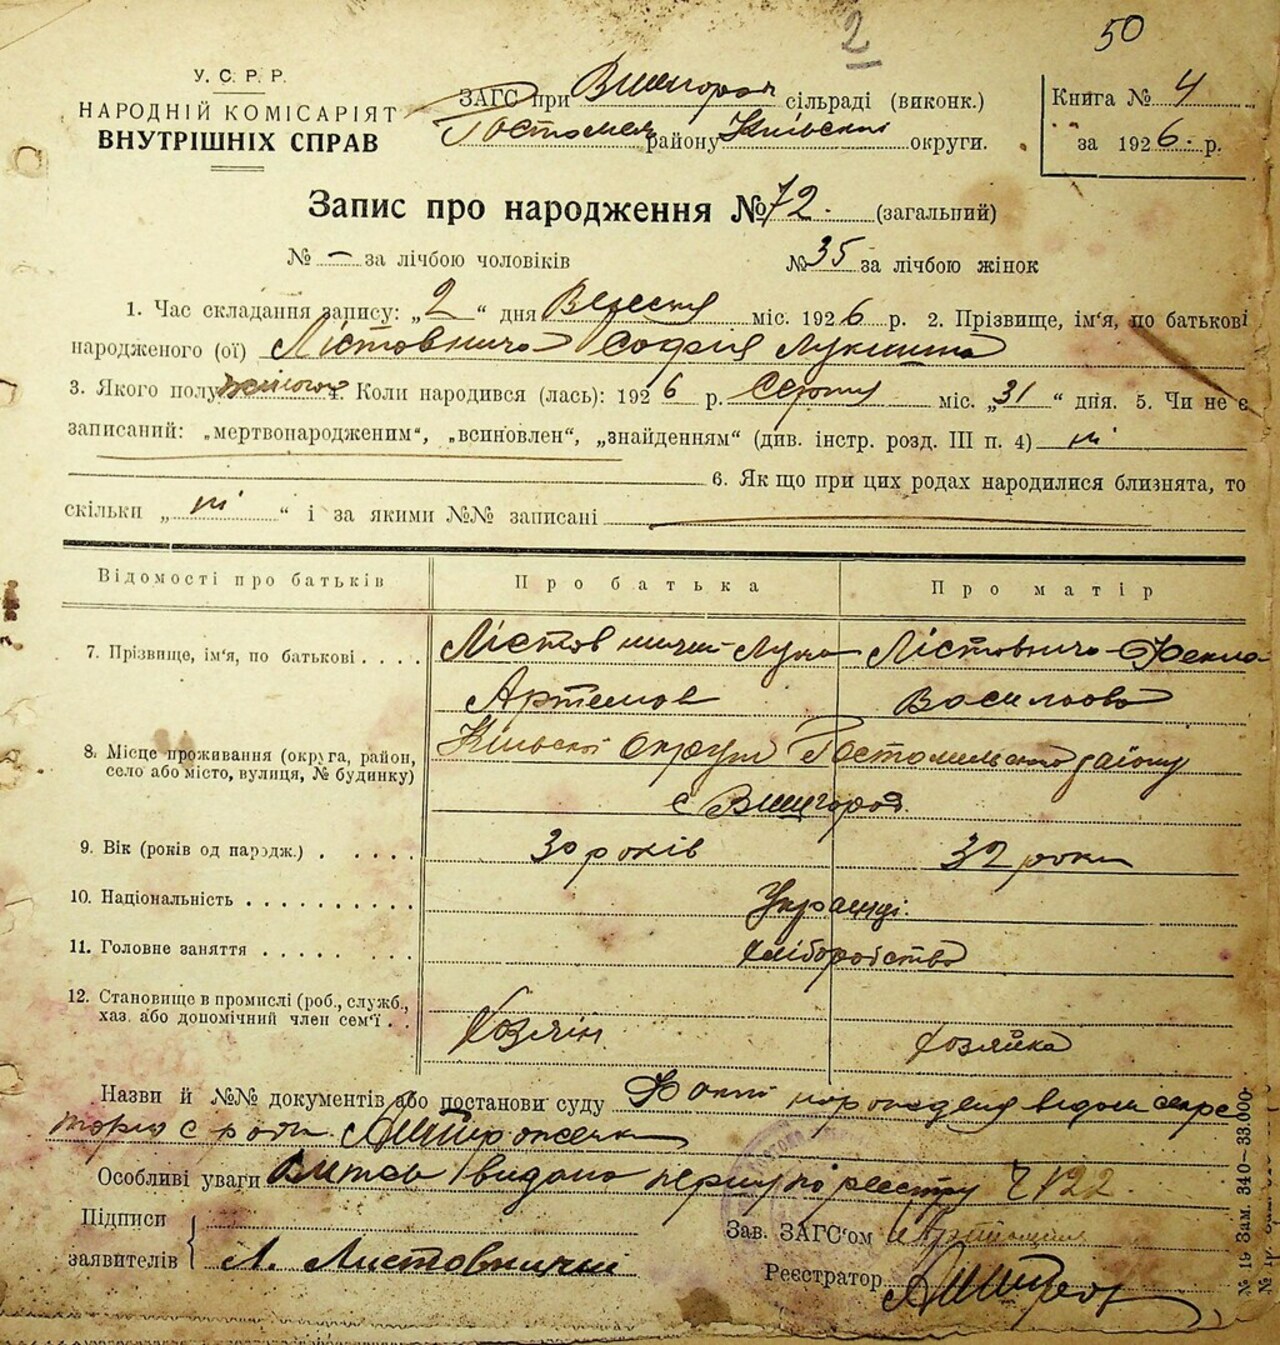 2
50
У. С. Р. Р.
НАРОДНІЙ КОМІСАРІЯТ
ВНУТРІШНІХ СПРАВ
ЗАГС при Вишгород сільраді (виконк.)
Гостомел району Київської округи.
Книга № 4
за 1926 р.
Запис про народження № 72. (загальний)
№ — за лічбою чоловіків
№ 35 за лічбою жінок
1. Час складання запису: „2“ дня Вересня міс. 1926 р. 2. Прізвище, ім‘я, по батькові
народженого (ої) Лістовнича София Лукишна
3. Якого полу жіночої 4. Коли народився (лась): 1926 р. Серпня міс. „31“ дня. 5. Чи не є
записаний: „мертвонародженим“, „всиновлен“, „знайденням“ (див. інстр. розд. III п. 4) ні
6. Як що при цих родах народилися близнята, то
скільки „ні“ і за якими №№ записані
Відомості про батьків Про батька Про матір
7. Прізвище, ім‘я, по батькові . . . . Лістовничий Лука Лістовнича Фекла
Артемов Васильова
8. Місце проживання (округа, район, село або місто, вулиця, № будинку) Київської округи Гостомильського району
с Вишгород.
9. Вік (років од народж.) . . . . . 30 років 32 роки
10. Національність . . . . . . . . . . Українці.
11. Головне заняття . . . . . . . . хліборобство
12. Становище в промислі (роб., служб.,
хаз. або допомічний член сем‘ї . . Хозяїн. хозяйка
Назви й №№ документів або постанови суду Факт народження відом секре
тарю с ради
Особливі уваги Витяг видано першу по реестру № 122.
Підписи
заявителів Л. Листовничий
Зав. ЗАГС‘ом
Реєстратор
№ 19 Зам. 340–33.000